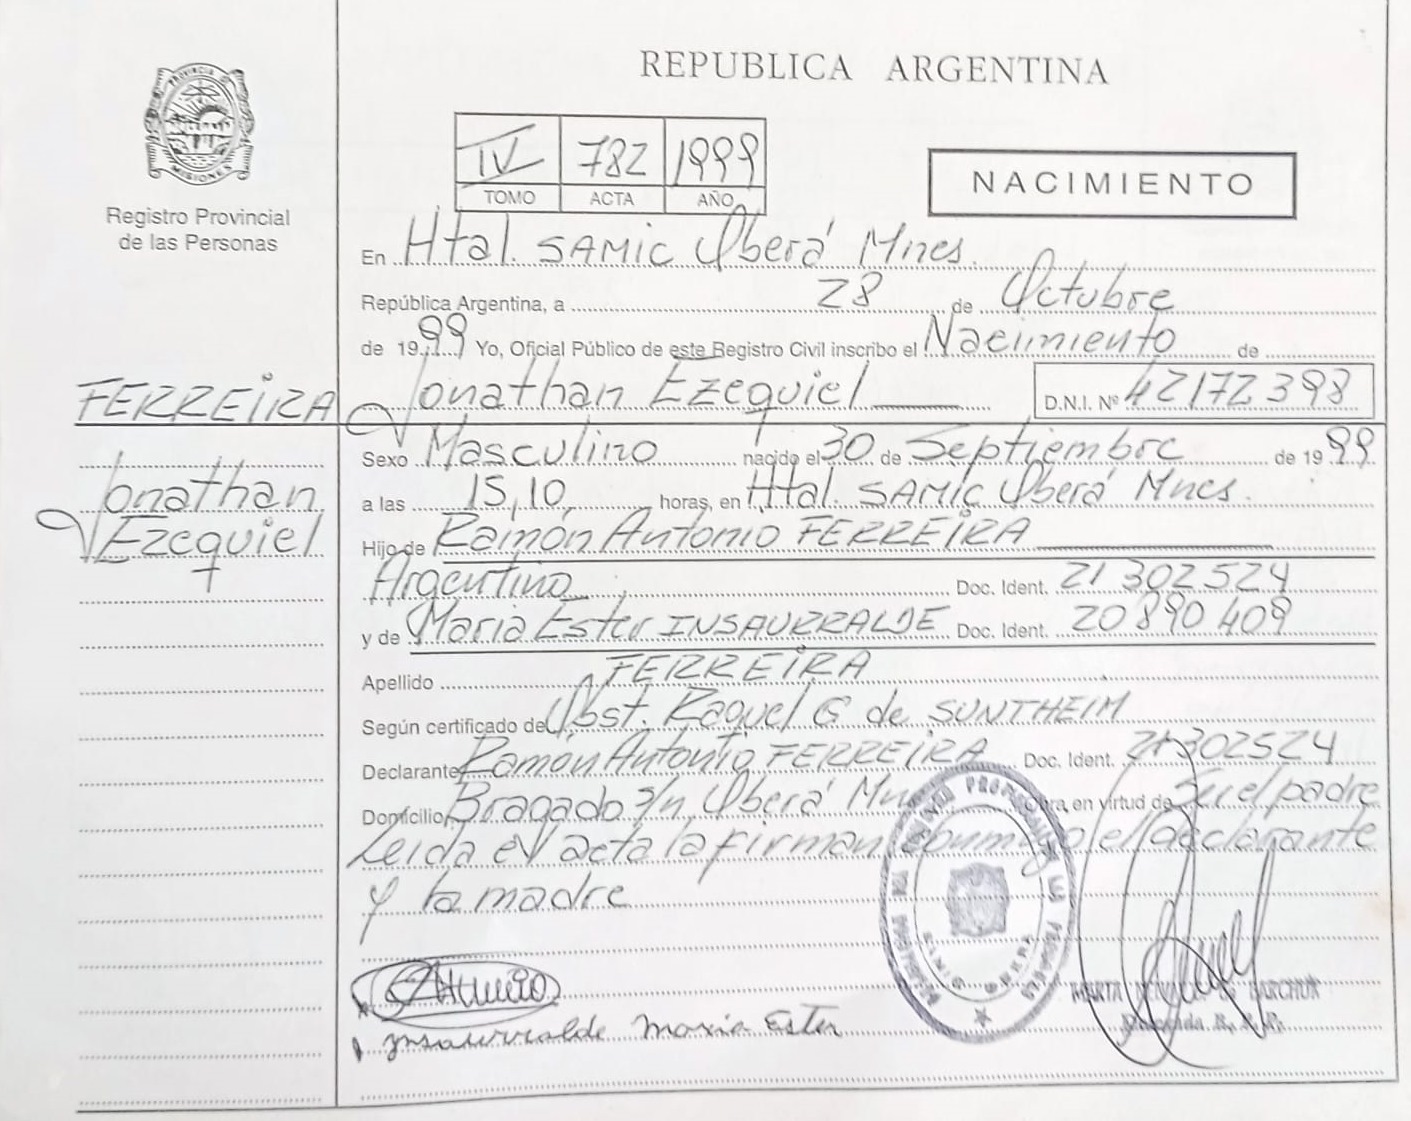 PROVINCIA DE
MISIONES
Registro Provincial
de las Personas
REPUBLICA ARGENTINA
IV 782 1999
TOMO ACTA AÑO
NACIMIENTO
En Htal. SAMIC Oberá Mnes.
República Argentina, a 28 de Octubre
de 1999 Yo, Oficial Público de este Registro Civil inscribo el Nacimiento de
FERREIRA Jonathan Ezequiel D.N.I. Nº 42172398
Sexo Masculino nacido el 30 de Septiembre de 1999
Jonathan
a las 15,10, horas, en Htal. SAMIC Oberá Mnes.
Ezequiel
Hijo de Ramón Antonio FERREIRA
Argentino, Doc. Ident. 21 302 524
y de Maria Ester INSAURRALDE Doc. Ident. 20 890 409
Apellido FERREIRA
Según certificado de Obst. Raquel G de SUNTHEIM
Declarante Ramón Antonio FERREIRA Doc. Ident. 21302524
Domicilio Bragado s/n, Oberá Mnes Obra en virtud de Ser el padre
Leida el acta la firman conmigo el declarante
y la madre
Insaurralde Maria Ester
MARTA